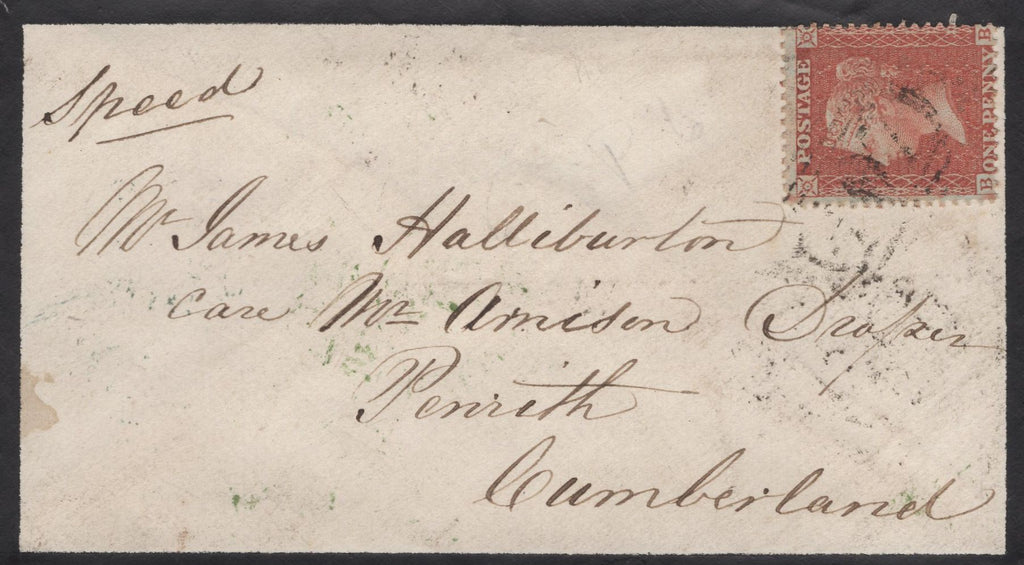 Speed
POSTAGE
ONE PENNY
B B
Mr James Halliburton
care Mr Amison Draper
Penrith
Cumberland